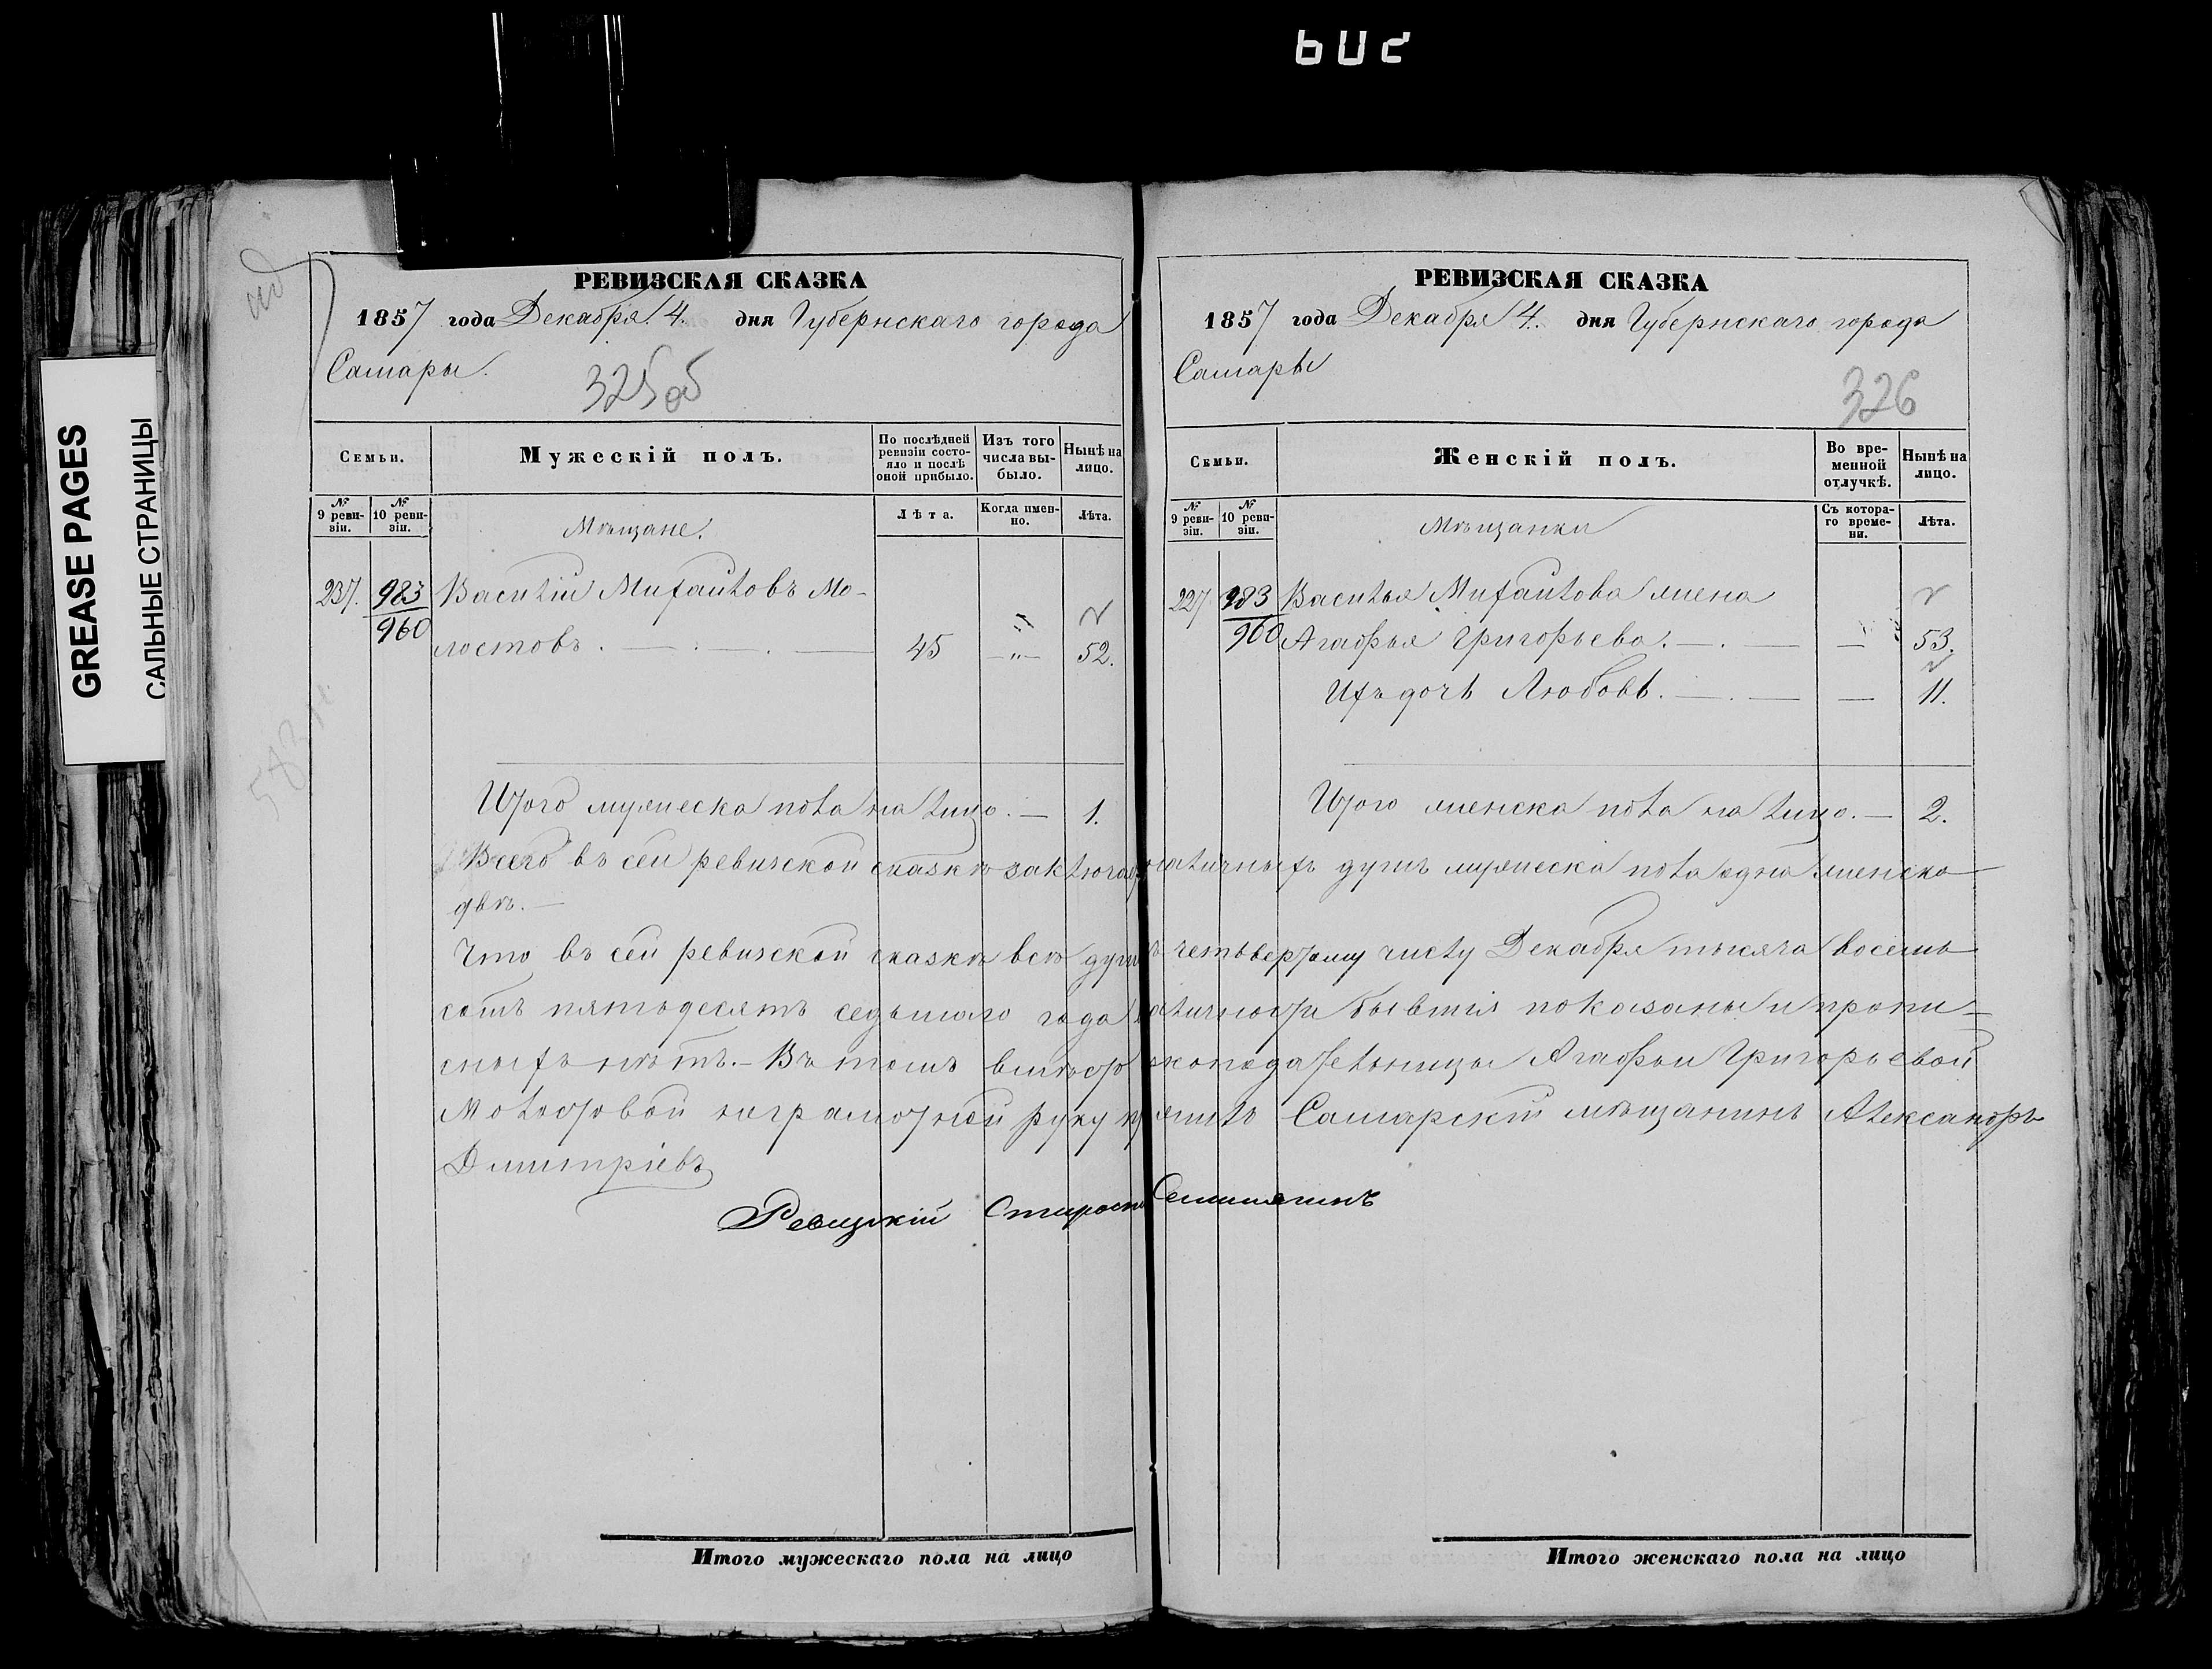 602
GREASE PAGES
САЛЬНЫЕ СТРАНИЦЫ
РЕВИЗСКАЯ СКАЗКА
1857 года Декабря 4. дня Губернскаго города
Самары.
325 об
Семьи.
Мужескій полъ.
По послѣдней ревизіи состо-
яло и послѣ оной прибыло.
Изъ того числа вы-
было.
Нынѣ на лицо.
№ 9 реви-
зіи.
№ 10 реви-
зіи.
Мѣщане.
Лѣта.
Когда имен-
но.
Лѣта.
237. 983 Василій Михайловъ Мо-
960 лостовъ. 45 — " — 52.
Итого мужеска пола на лицо. — 1.
РЕВИЗСКАЯ СКАЗКА
1857 года Декабря 4. дня Губернскаго города
Самары
326
Семьи.
Женскій полъ.
Во вре-
менной отлучкѣ.
Нынѣ на лицо.
№ 9 реви-
зіи.
№ 10 реви-
зіи.
Мѣщанки
Съ котора-
го време-
ни.
Лѣта.
227 983 Василья Михайлова жена
960 Агафья Григорьева. — 53.
Ихъ дочь Любовь. — 11.
Итого женска пола на лицо. — 2.
Всего въ сей ревизской сказкѣ наличныхъ душъ мужеска пола одна женска
двѣ. —
Что въ сей ревизской сказкѣ всѣ души четвертому числу Декабря тысяча восемь
сотъ пятьдесятъ седьмаго года бывшія показаны и пропи-
сныхъ нѣтъ. — Въ томъ вмѣсто Агафьи Григорьевой
Молостовой неграмотной руку Самарскій мѣщанинъ Александръ
Дмитріевъ
Ревизскій Староста
Итого мужескаго пола на лицо
Итого женскаго пола на лицо